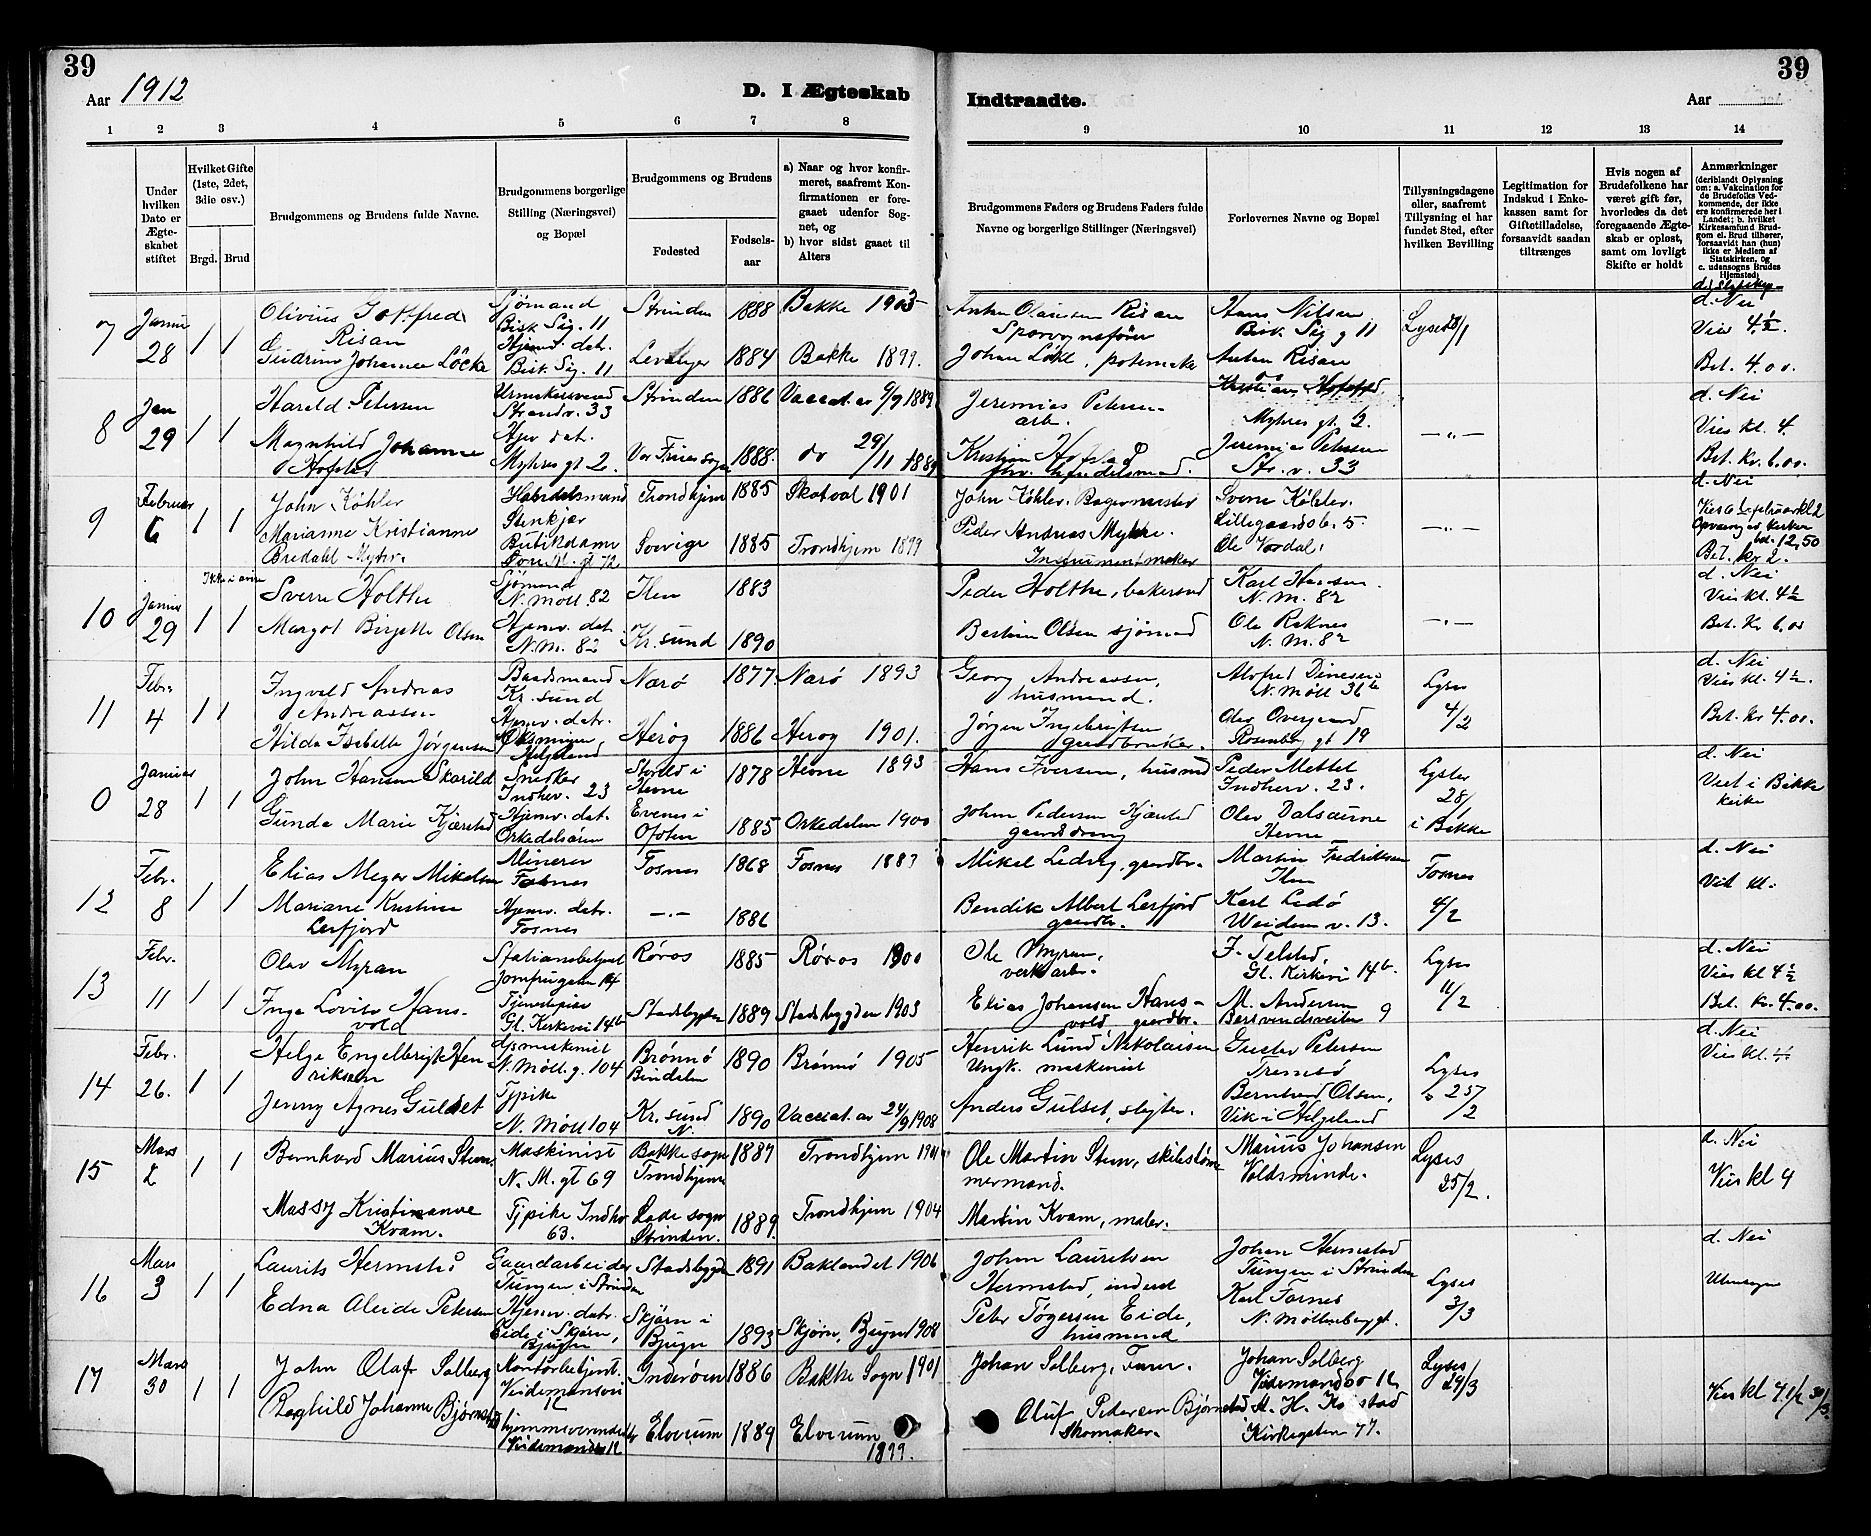 39
39
Aar 1912
D. I Ægteskab
Indtraadte.
Aar
1 2 3 4 5 6 7 8 9 10 11 12 13 14
Under hvilken Dato er Ægteskabet stiftet
Hvilket Gifte (1ste, 2det, 3die osv.)
Brgd. Brud
Brudgommens og Brudens fulde Navne.
Brudgommens borgerlige Stilling (Næringsvei) og Bopæl
Brudgommens og Brudens
Fødested
Fødselsaar
a) Naar og hvor konfirmeret, saafremt Konfirmationen er foregaaet udenfor Sognet, og
b) hvor sidst gaaet til Alters
Brudgommens Faders og Brudens Faders fulde Navne og borgerlige Stillinger (Næringsvei)
Forlovernes Navne og Bopæl
Tillysningsdagene eller, saafremt Tillysning ei har fundet Sted, efter hvilken Bevilling
Legitimation for Indskud i Enkekassen samt for Giftetilladelse, forsaavidt saadan tiltrænges
Hvis nogen af Brudefolkene har været gift før, hvorledes da det foregaaende Ægteskab er opløst, samt om lovligt Skifte er holdt
Anmærkninger
(deriblandt Oplysning om: a. Vakcination for de Brudefolks Vedkommende, der ikke ere konfirmerede her i Landet; b. hvilket Kirkesamfund Brudgom el. Brud tilhører, forsaavidt han (hun) ikke er Medlem af Statskirken, og c. udensogns Brudes Hjemsted)
7 Januar 28 1 1
Olivius Risan
Gudrun Johanna Löcke
Sjömand
Bisk. Sig. 11
Hjemv. det.
Bisk. Sig. 11
Strinden 1888 Bakke 1903
Levanger 1884 Bakke 1899.
Anton Olausen Risan
Sporvognsfører
Johan Løkl, potemaker
Hans Nilsen
Bisk. Sig. g 11
Anton Risan
d. Nei
Vies 4½
Bet. 4.00.
8 Jan 29 1 1
Harald Petersen
Magnhild Johanne Hofstad
Strandv. 33
Hjev. det.
Myhres gt 2.
Strinden 1886
Vor Frues sogn 1888.
Jeremias Petersen
arb.
Kristian Hofstad
fhv. handelsmand.
Kristian Hofstad
Myhres gt. 2.
Jeremias Petersen
Str. v. 33
— " —
d. Nei
Vies kl. 4.
Bet. Kr. 6.00.
9 Februar 6 1 1
John Köhler
Marianne Kristianne
Bredahl Myhre
Handelsmand
Stenkjær
Butikdame
Trondhjem 1885 Skatval 1901
Sverige 1885 Trondhjem 1899
John Köhler. Bagermester
Peder Andreas Myhre.
Instrumentmaker
Sverre Köhler.
Lillegaardsb. 5.
Ole Vordal.
— " —
d. Nei
Bet. kr 2.
10 Januar 29 1 1
Sverre Holthe
Margot Birgitte Olsen
Sjömand
N. Möll. 82
Hjemv. det.
N. M. 82
Ilen 1883
Kr. sund 1890
Peder Holthe, bakersvd
Olsen sjömand
Karl Hansen.
N. M. 82
Ole Raknes
N. M. 82
— " —
d. Nei
Vies kl. 4½
Bet. Kr 6.00
11 Febr. 4 1 1
Ingvald Andreas
Andreassen
Hilda Isabella Jörgensen
Baadsmand
Kr. sund
Hjemv. datr.
Helgeland
Nærö 1877. Nærö 1893
Herøg 1886 Herøg 1901.
Georg Andreassen,
husmand.
Jörgen Ingebrigtsen
gaardbruker.
Alfred Dinesen
N. Möll 36b
Olav Overgaard
Rosenborg gt 19
Lyses
4/2
d. Nei
Vies kl. 4½.
Bet. Kr 4.00.
0 Januar 28 1 1
John Hansen Skarild
Gunda Marie Kjærstad
Snedker
Indherv. 23
Hjemv. det.
Orkedalsören
Hevne 1878 Hevne 1893
Evenes i
Ofoten 1885 Orkedalen 1900
Hans Iversen, husmd
Johan Pedersen Kjærstad
Peder Mettet
Indherv. 23.
Olav Dalsaune
Hevne
Lyster
28/1
i Bakke
d. Nei
Viet i Bakke
kirke
12 Febr. 8 1 1
Elias Meyer Mikalsen
Mariane Kristine
Lerfjord
Minerer
Fosnes
Hjemv. datr.
Fosnes
Fosnes 1868 Fosnes 1883
— " — 1886
Mikal Ledvig, gaardbr.
Bendik Albert Lerfjord
gaardb.
Martin Fredriksen
Ilen
Karl Ledö
Weidem v. 13.
Fosnes
4/2
d. Nei
13 Febr. 11 1 1
Olav Myran
Inga Lovise Hansvold
Jomfrugaten 14
Tjenestepike
Gl. Kirkevei 14b
Røros 1885 Røros 1900
Stadsbygden 1889 Stadsbygden 1903
Ole Myran,
verksarb.
Elias Johansen Hansvold gaardbr.
Gl. Kirkevei 14b.
M. Andersen
Bersvendsveiten 9
Lyses
11/2
d. Nei
Vies kl 4½
Bet. Kr. 4.00.
14 Febr. 26. 1 1
Helge Engelbrigt Henriksen
Jenny Agnes Gulset
N. Möll. g. 104
Tjpike
N. Möll 104
Brönnö
Bindalen 1890 Brönnö 1905
Kr. sund
N. 1890 Vaccinat. av 24/9 1908
Henrik Lund Nikolaisen
Ungk. maskinist
Anders Gulset, slagter.
Gustav Petersen
Tromsö
Bernhard Olsen,
Vik i Helgeland
Lyses
25/2
d. Nei
15 Mars 2 1 1
Bernhard Marius Steen.
Massy Kristianne
Kvam.
Maskinist
N. M. gt 69
Tjpike Indhv
63.
Bakke sogn
Trondhjem 1887 Trondhjem 1901
Lade sogn
Strinden. 1889. Trondhjem 1904
Ole Martin Steen, skibstömmermand.
Martin Kvam, maler.
Marius Johansen
Voldsminde.
Lyses
25/2.
d. Nei
Vies kl 4
16 Mars 3 1 1
Laurits Hermstad
Edna Aleide Petersen
Gaardarbeider
Tungen i Strinden
Hjemv. datr.
Eide i Skjørn,
Bjugn
Stadsbygd 1891 Baklandet 1906
Skjørn i
Bjugn 1893 Skjørn, Bjugn 1908
Johan Lauritsen
Hermstad, inderst
Peter Tøgersen Eide,
husmand
Johan Hermstad
Tungen i Strinden
Karl Fornes
N. Möllenbergt.
Lyses
3/3
d. Nei
Utensogns
17 Mars 30 1 1
John Olaf Solberg
Ragnhild Johanne Bjørnstad
Kontorbetjent.
Veidemansvei
12
hjemmeværende
Veidemansv 12
Inderøen 1886 Bakke Sogn 1901
Elverum 1889 Elverum 1899.
Johan Solberg, Farver.
Oluf Pedersen Bjørnstad
Skomaker.
Johan Solberg
Veidemandsv 12
A. H. Karstad
Kirkegaten 77.
Lyses
24/3
Vies kl 4 1/2 30/3.